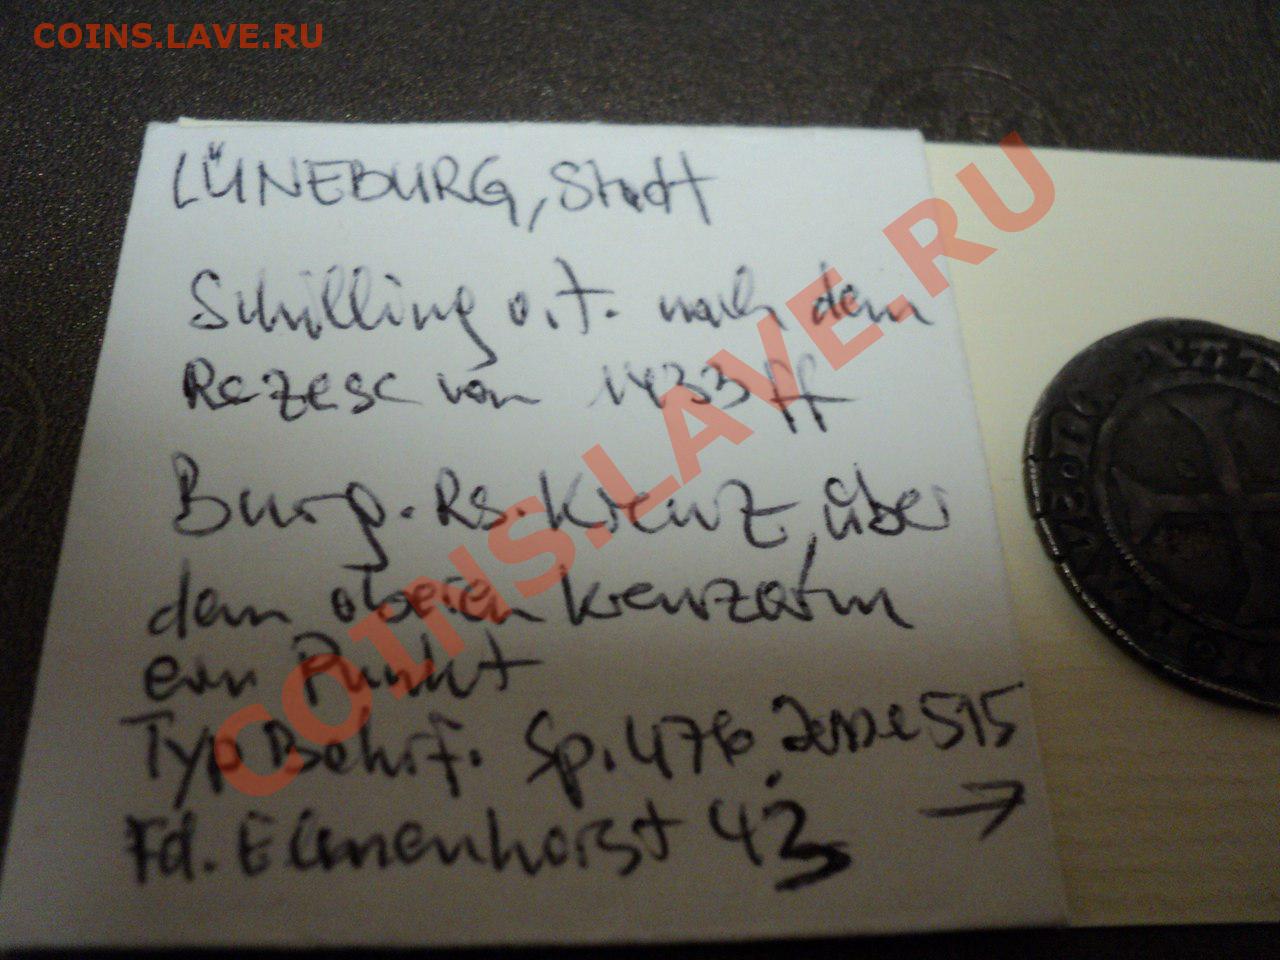 COINS.LAVE.RU
LÜNEBURG, Stadt
Schilling o.J. nach dem
Rezess von 1433 ff
Burg. Rs. Kreuz, über
dem oberen Kreuzarm
ein Punkt
Typ Behrf. Sp. 47 Jesse 515
Fd. Elmenhorst 43
→
COINS.LAVE.RU